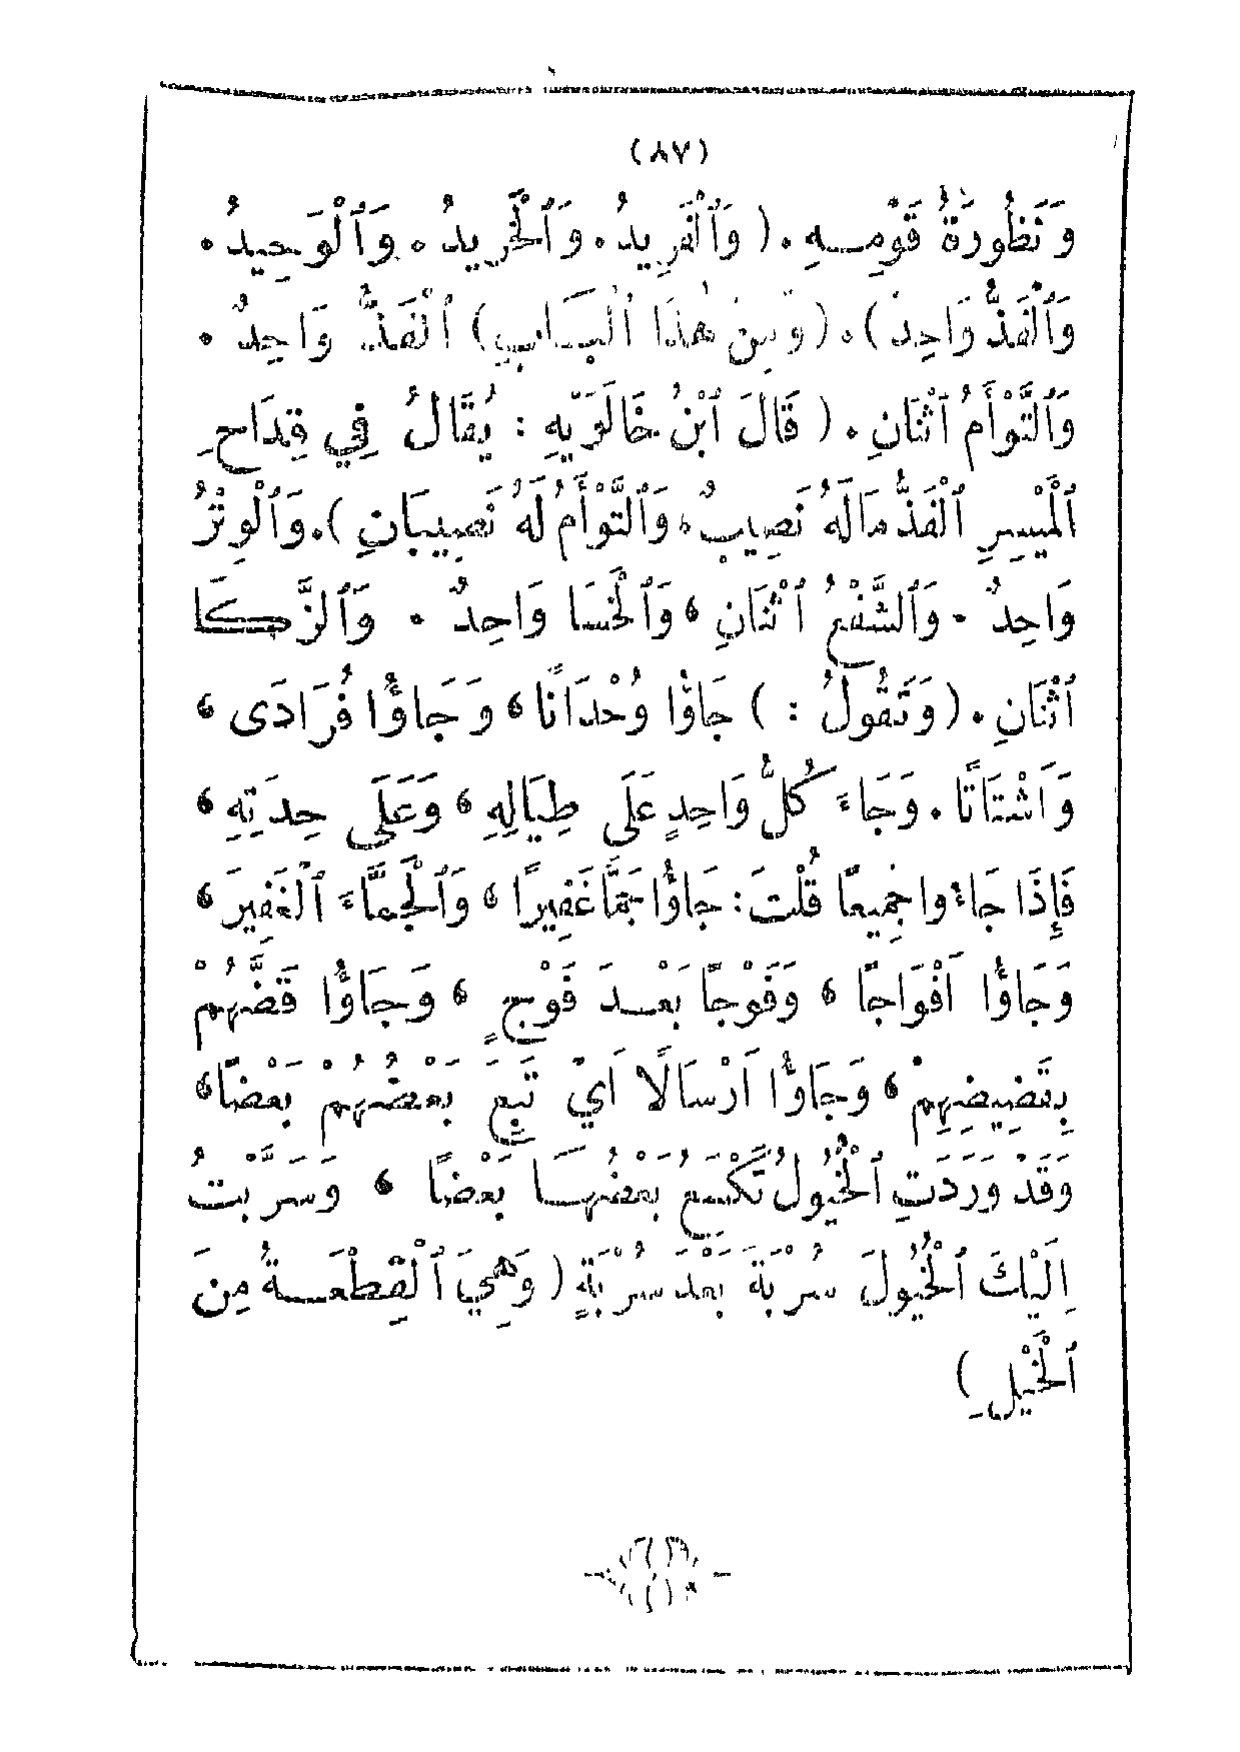 (٨٧)
وَنَظُورَةُ قَوْمِهِ. (وَٱلْفَرِيدُ. وَٱلْخَرِيدُ. وَٱلْوَحِيدُ.
وَٱلْفَذُّ وَاحِدٌ). (وَمِنْ هٰذَا ٱلْبَابِ) ٱلْفَذُّ وَاحِدٌ.
وَٱلتَّوْأَمُ ٱثْنَانِ. (قَالَ ٱبْنُ خَالَوَيْهِ: يُقَالُ فِي قِدَاحِ
ٱلْمَيْسِرِ ٱلْفَذُّ مَا لَهُ نَصِيبٌ، وَٱلتَّوْأَمُ لَهُ نَصِيبَانِ). وَٱلْوِتْرُ
وَاحِدٌ. وَٱلشَّفْعُ ٱثْنَانِ، وَٱلْخَسَا وَاحِدٌ. وَٱلزَّكَا
ٱثْنَانِ. (وَتَقُولُ:) جَاؤُا وُحْدَانًا، وَجَاؤُا فُرَادَى،
وَاَشْتَاتًا. وَجَاءَ كُلُّ وَاحِدٍ عَلَى طِيَالِهِ، وَعَلَى حِدَتِهِ،
فَإِذَا جَاءُوا جَمِيعًا قُلْتَ: جَاؤُا جَمًّا غَفِيرًا، وَٱلْجَمَّاءَ ٱلْغَفِيرَ،
وَجَاؤُا اَفْوَاجًا، وَفَوْجًا بَعْدَ فَوْجٍ، وَجَاؤُا قَضُّهُمْ
بِقَضِيضِهِمْ، وَجَاؤُا اَرْسَالًا اَيْ تَبِعَ بَعْضُهُمْ بَعْضًا،
وَقَدْ وَرَدَتِ ٱلْخُيُولُ تَكْسَعُ بَعْضُهَا بَعْضًا، وَسَرَّبْتُ
اِلَيْكَ ٱلْخُيُولَ سُرْبَةً بَعْدَ سُرْبَةٍ (وَهِيَ ٱلْقِطْعَةُ مِنَ
ٱلْخَيْلِ)